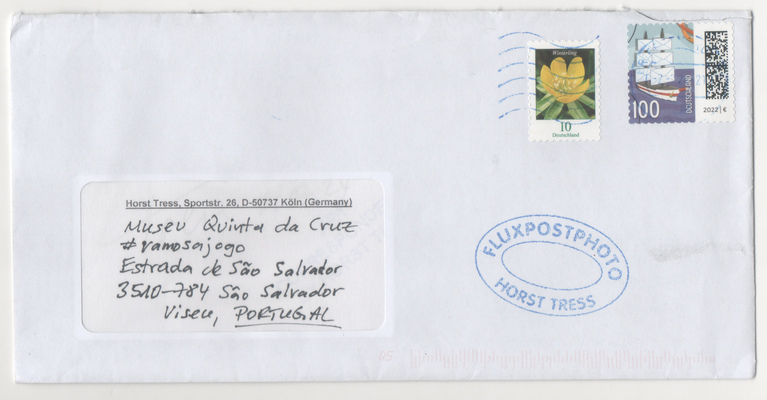 Winterling
10
Deutschland
100
DEUTSCHLAND
2022 | €
Horst Tress, Sportstr. 26, D-50737 Köln (Germany)
Museu Quinta da Cruz
#vamosajogo
Estrada de São Salvador
3510-784 São Salvador
Viseu, PORTUGAL
FLUXPOSTPHOTO
HORST TRESS